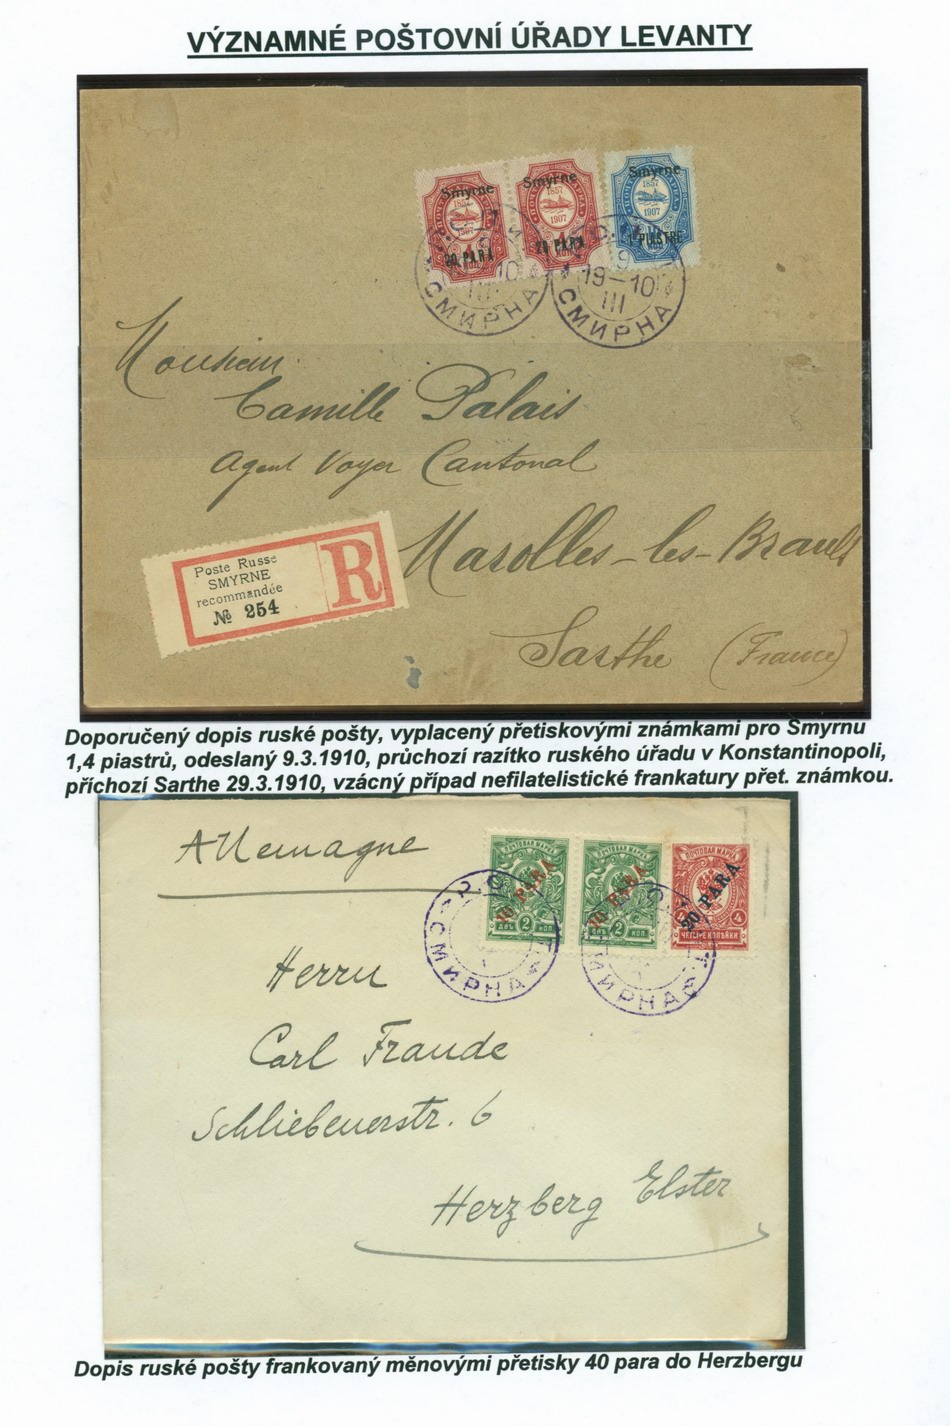 VÝZNAMNÉ POŠTOVNÍ ÚŘADY LEVANTY
Smyrne
1857
1907
20 PARA
Smyrne
1857
1907
20 PARA
Smyrne
1857
1907
1 PIASTRE
СМИРНА
9
19-10
III
СМИРНА
Monsieur
Camille Palais
Agent Voyer Cantonal
Marolles-les-Braults
Sarthe (France)
Poste Russe
SMYRNE
recommandée
№ 254
R
Doporučený dopis ruské pošty, vyplacený přetiskovými známkami pro Smyrnu
1,4 piastrů, odeslaný 9.3.1910, průchozí razítko ruského úřadu v Konstantinopoli,
příchozí Sarthe 29.3.1910, vzácný případ nefilatelistické frankatury přet. známkou.
Allemagne
ПОЧТОВАЯ МАРКА
10 PARA
ДВѢ 2 КОП.
ПОЧТОВАЯ МАРКА
10 PARA
ДВѢ 2 КОП.
ПОЧТОВАЯ МАРКА
20 PARA
4 4
ЧЕТЫРЕ КОПѢЙКИ
СМИРНА
СМИРНА
Herrn
Carl Fraude
Schliebenerstr. 6
Herzberg Elster
Dopis ruské pošty frankovaný měnovými přetisky 40 para do Herzbergu